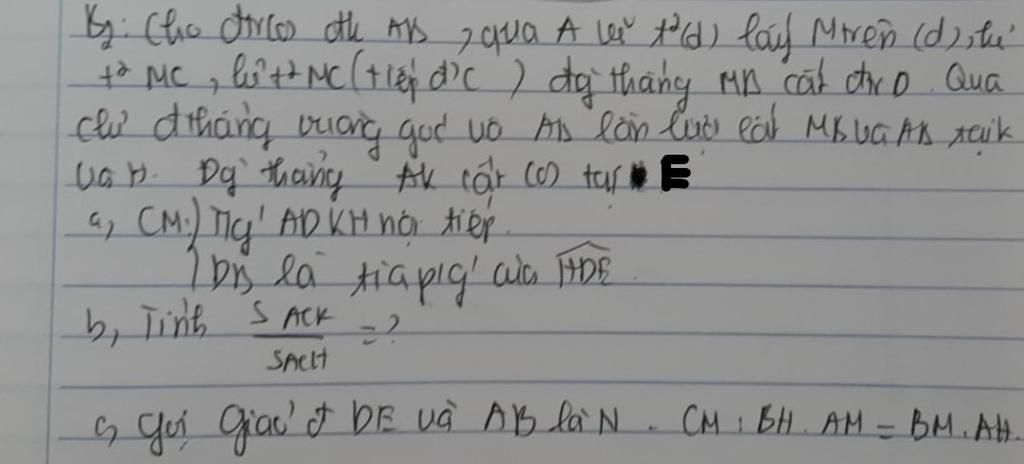 B2: Cho đtr(o) đk AB, qua A kẻ t²(d) lấy M trên (d), kẻ
t² MC, kẻ t² MC (tiếp đ' C) đg' thẳng MB cắt đtr D. Qua
C kẻ đ thẳng vuông góc vô AB lần lượt cắt MB và AB tại K
và H. Đg' thẳng AK cắt (o) tại E
a, CM:) Tig' ADKH nội tiếp.
) DB là tia p/g' của HDE
b, Tính S ACK / S ACH = ?
c, gọi giao' đ DE và AB là N. CM: BH. AM = BM. AH.